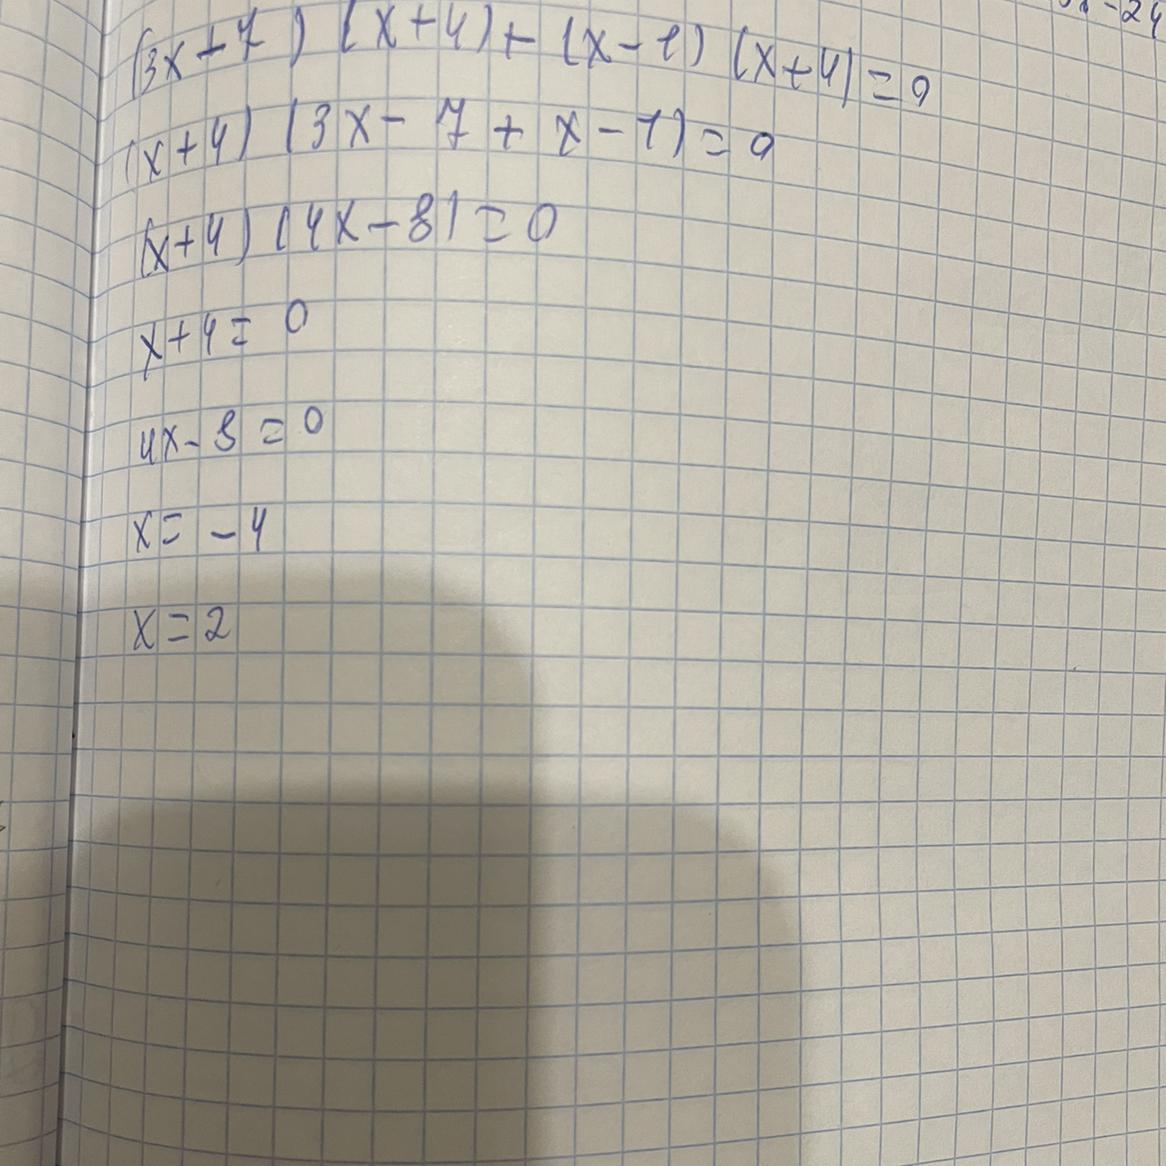 (3x+7) (x+4) + (x-1) (x+4) = 0
(x+4) (3x - 7 + x - 1) = 0
(x+4) (4x - 8) = 0
x+4 = 0
4x - 8 = 0
x = -4
x = 2